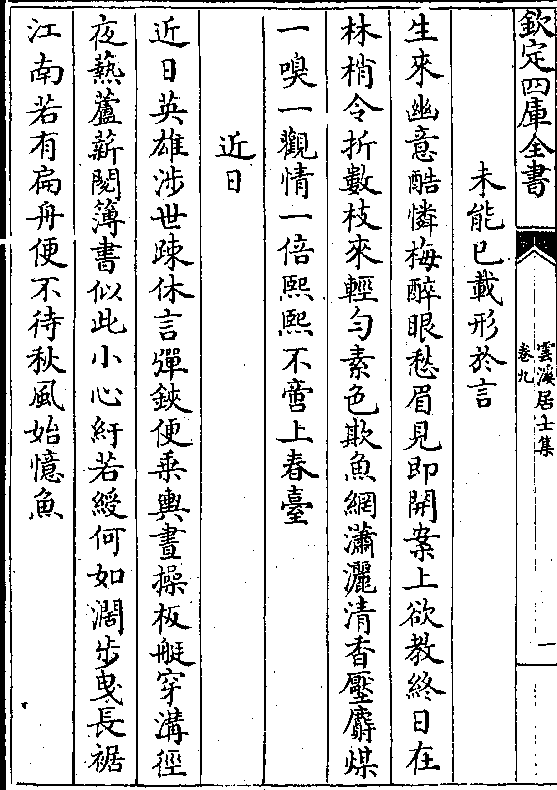 欽定四庫全書
雲溪居士集
卷九
一
未能已載形於言
生來幽意酷憐梅醉眼愁眉見即開案上欲教終日在
林梢令折數枝來輕勻素色欺魚網瀟灑清香壓麝煤
一嗅一觀情一倍熙熙不啻上春臺
近日
近日英雄涉世踈休言彈鋏便乗輿晝操板艇穿溝徑
夜爇蘆薪閱簿書似此小心紆若綬何如濶歩曵長裾
江南若有扁舟便不待秋風始憶魚